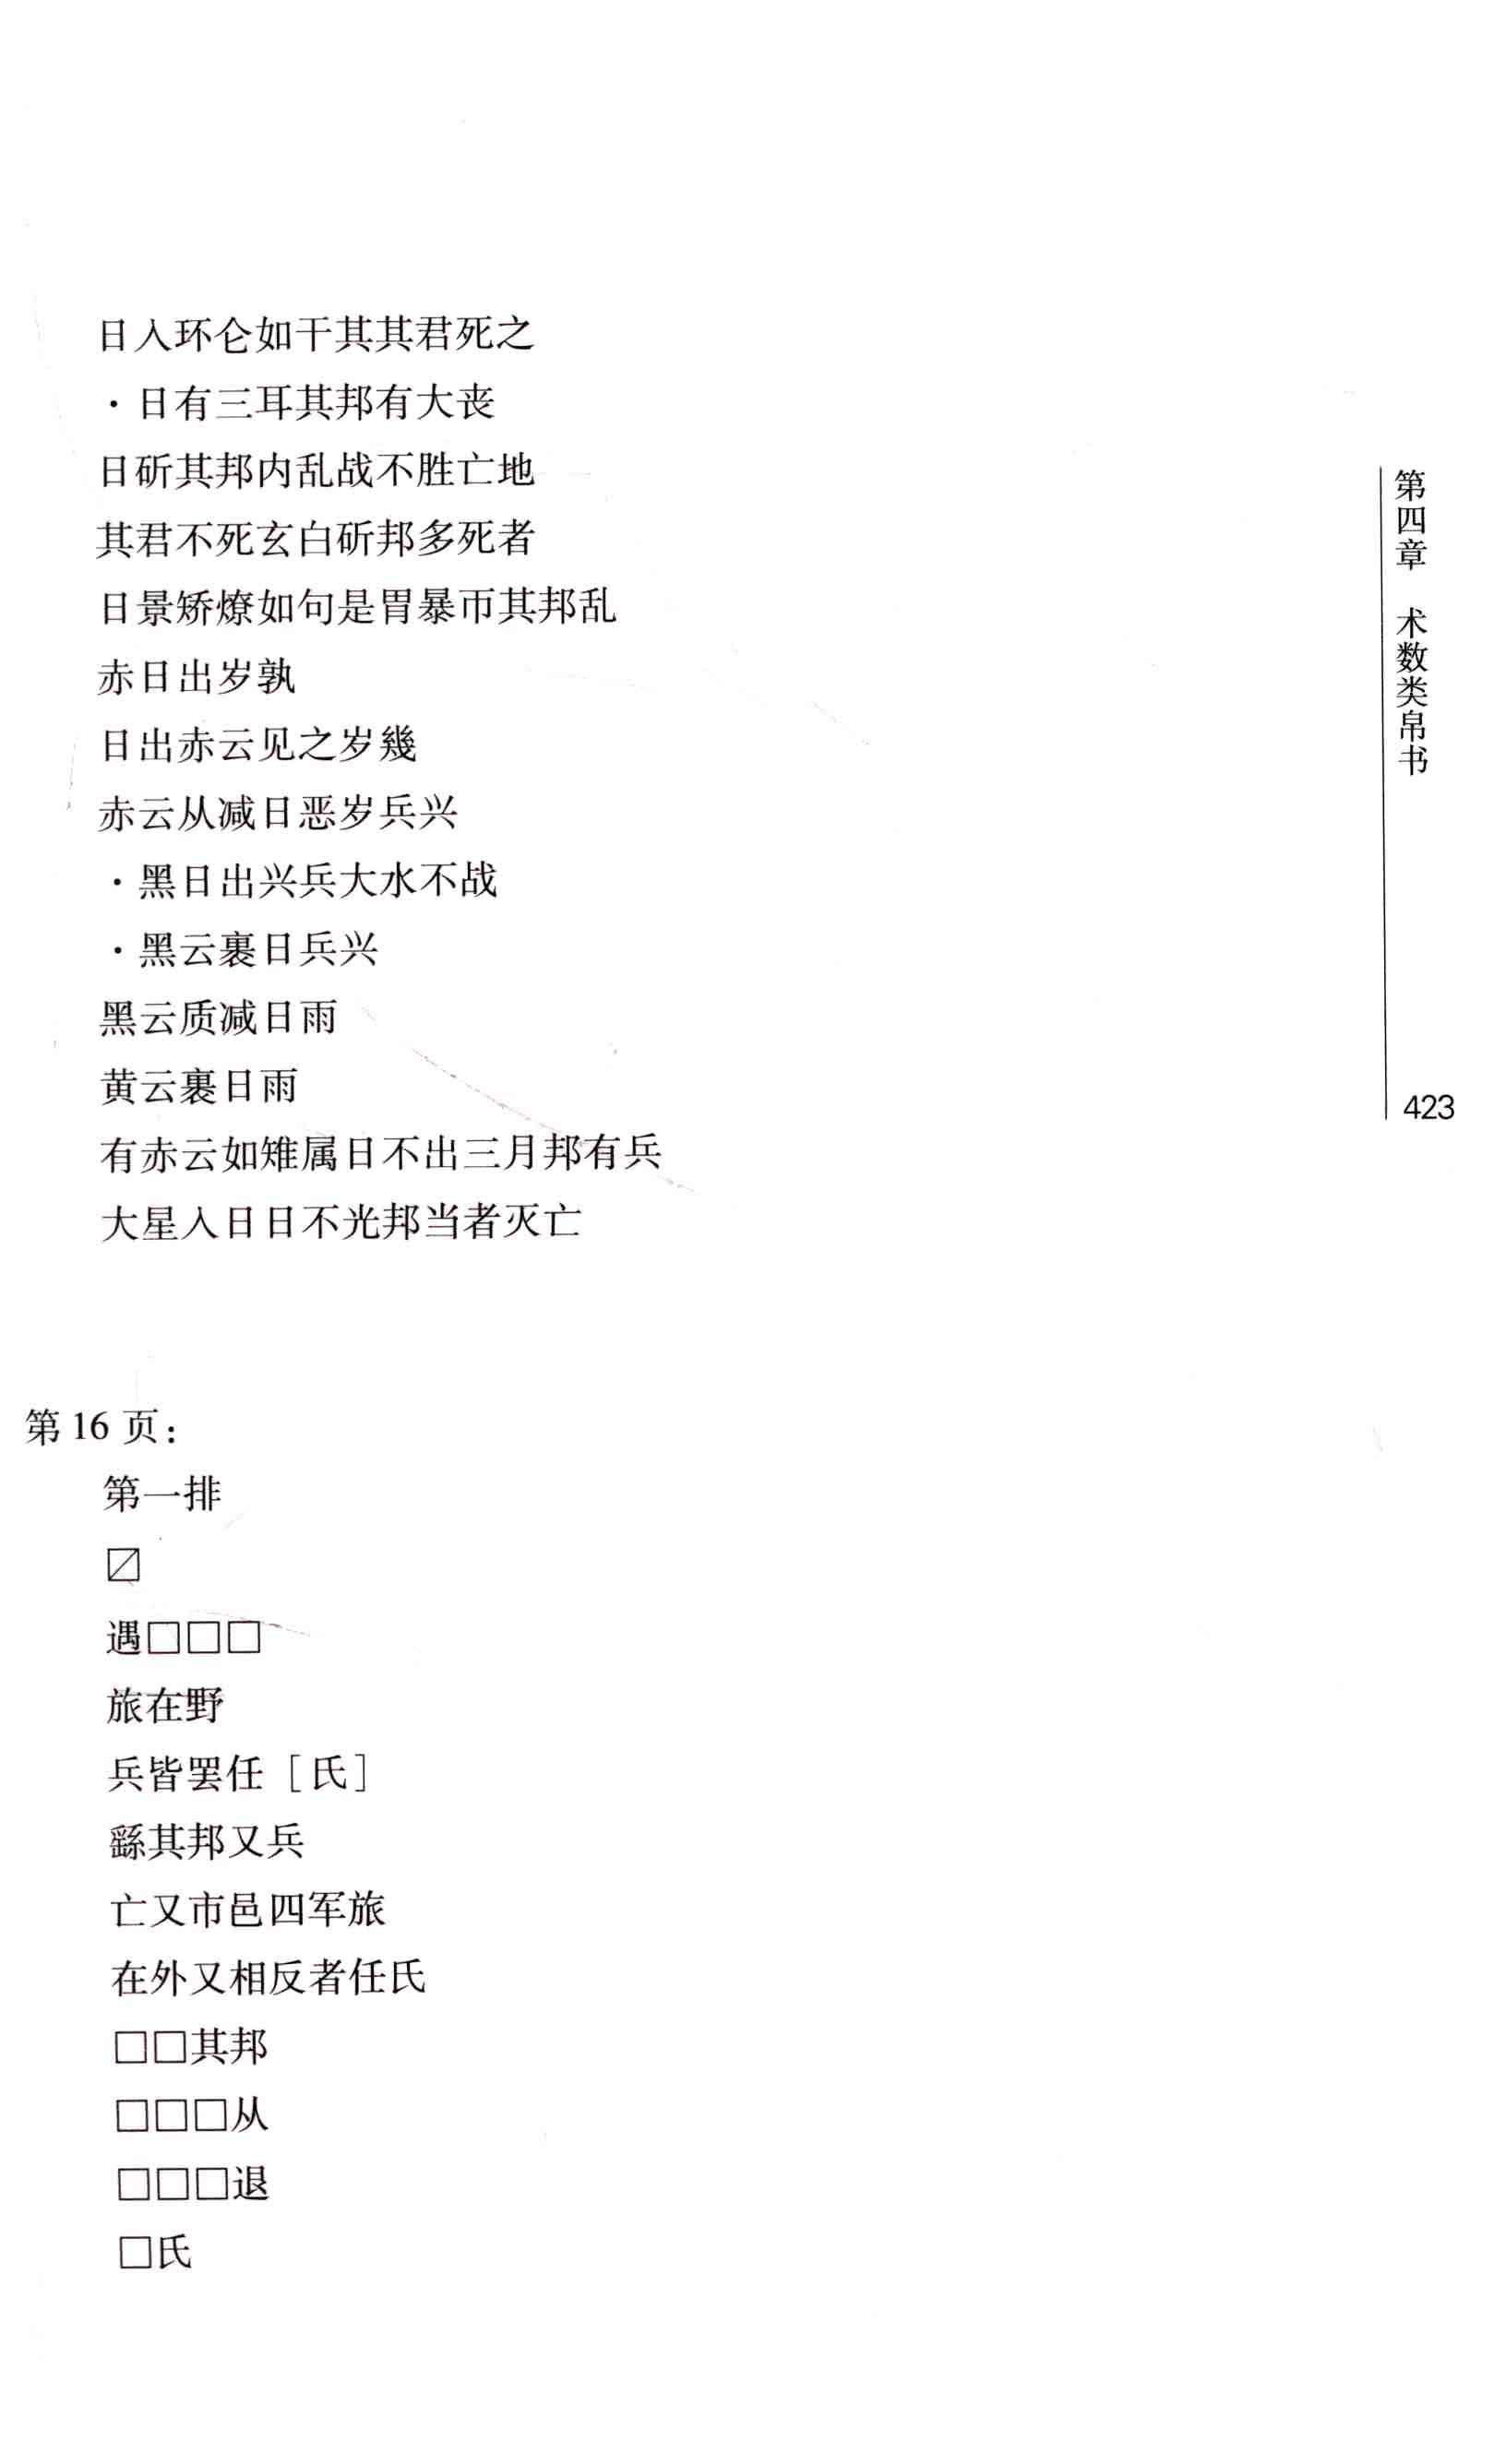 日入环仑如干其其君死之
·日有三耳其邦有大丧
日斫其邦内乱战不胜亡地
其君不死玄白斫邦多死者
日景矫燎如句是胃暴帀其邦乱
赤日出岁孰
日出赤云见之岁幾
赤云从减日恶岁兵兴
·黑日出兴兵大水不战
·黑云裹日兵兴
黑云质减日雨
黄云裹日雨
有赤云如雉属日不出三月邦有兵
大星入日日不光邦当者灭亡
第16页：
第一排
〼
遇□□□
旅在野
兵皆罢任［氏］
繇其邦又兵
亡又市邑四军旅
在外又相反者任氏
□□其邦
□□□从
□□□退
□氏
第四章 术数类帛书
423